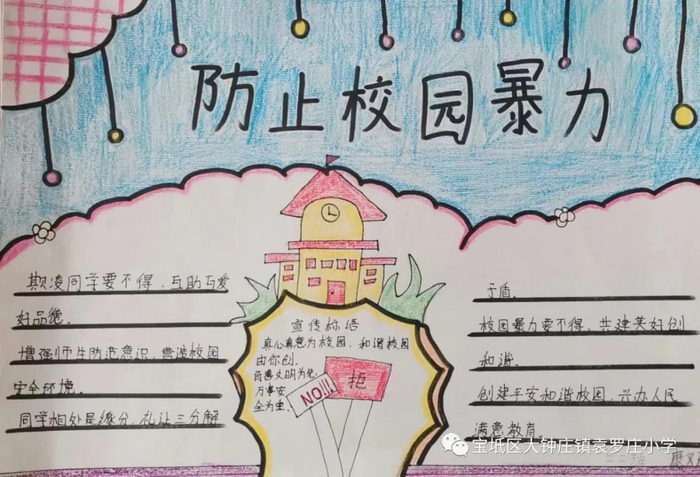 防止校园暴力
欺凌同学要不得，互助互爱
好品德。
增强师生防范意识，营造校园
安全环境。
同学相处是缘分，礼让三分解
宣传标语
真心真意为校园，和谐校园
由你创。
万事安
全为重。
NO!!!
拒
矛盾。
校园暴力要不得，共建美好创
和谐。
创建平安和谐校园，兴办人民
满意教育。
宝坻区大钟庄镇袁罗庄小学